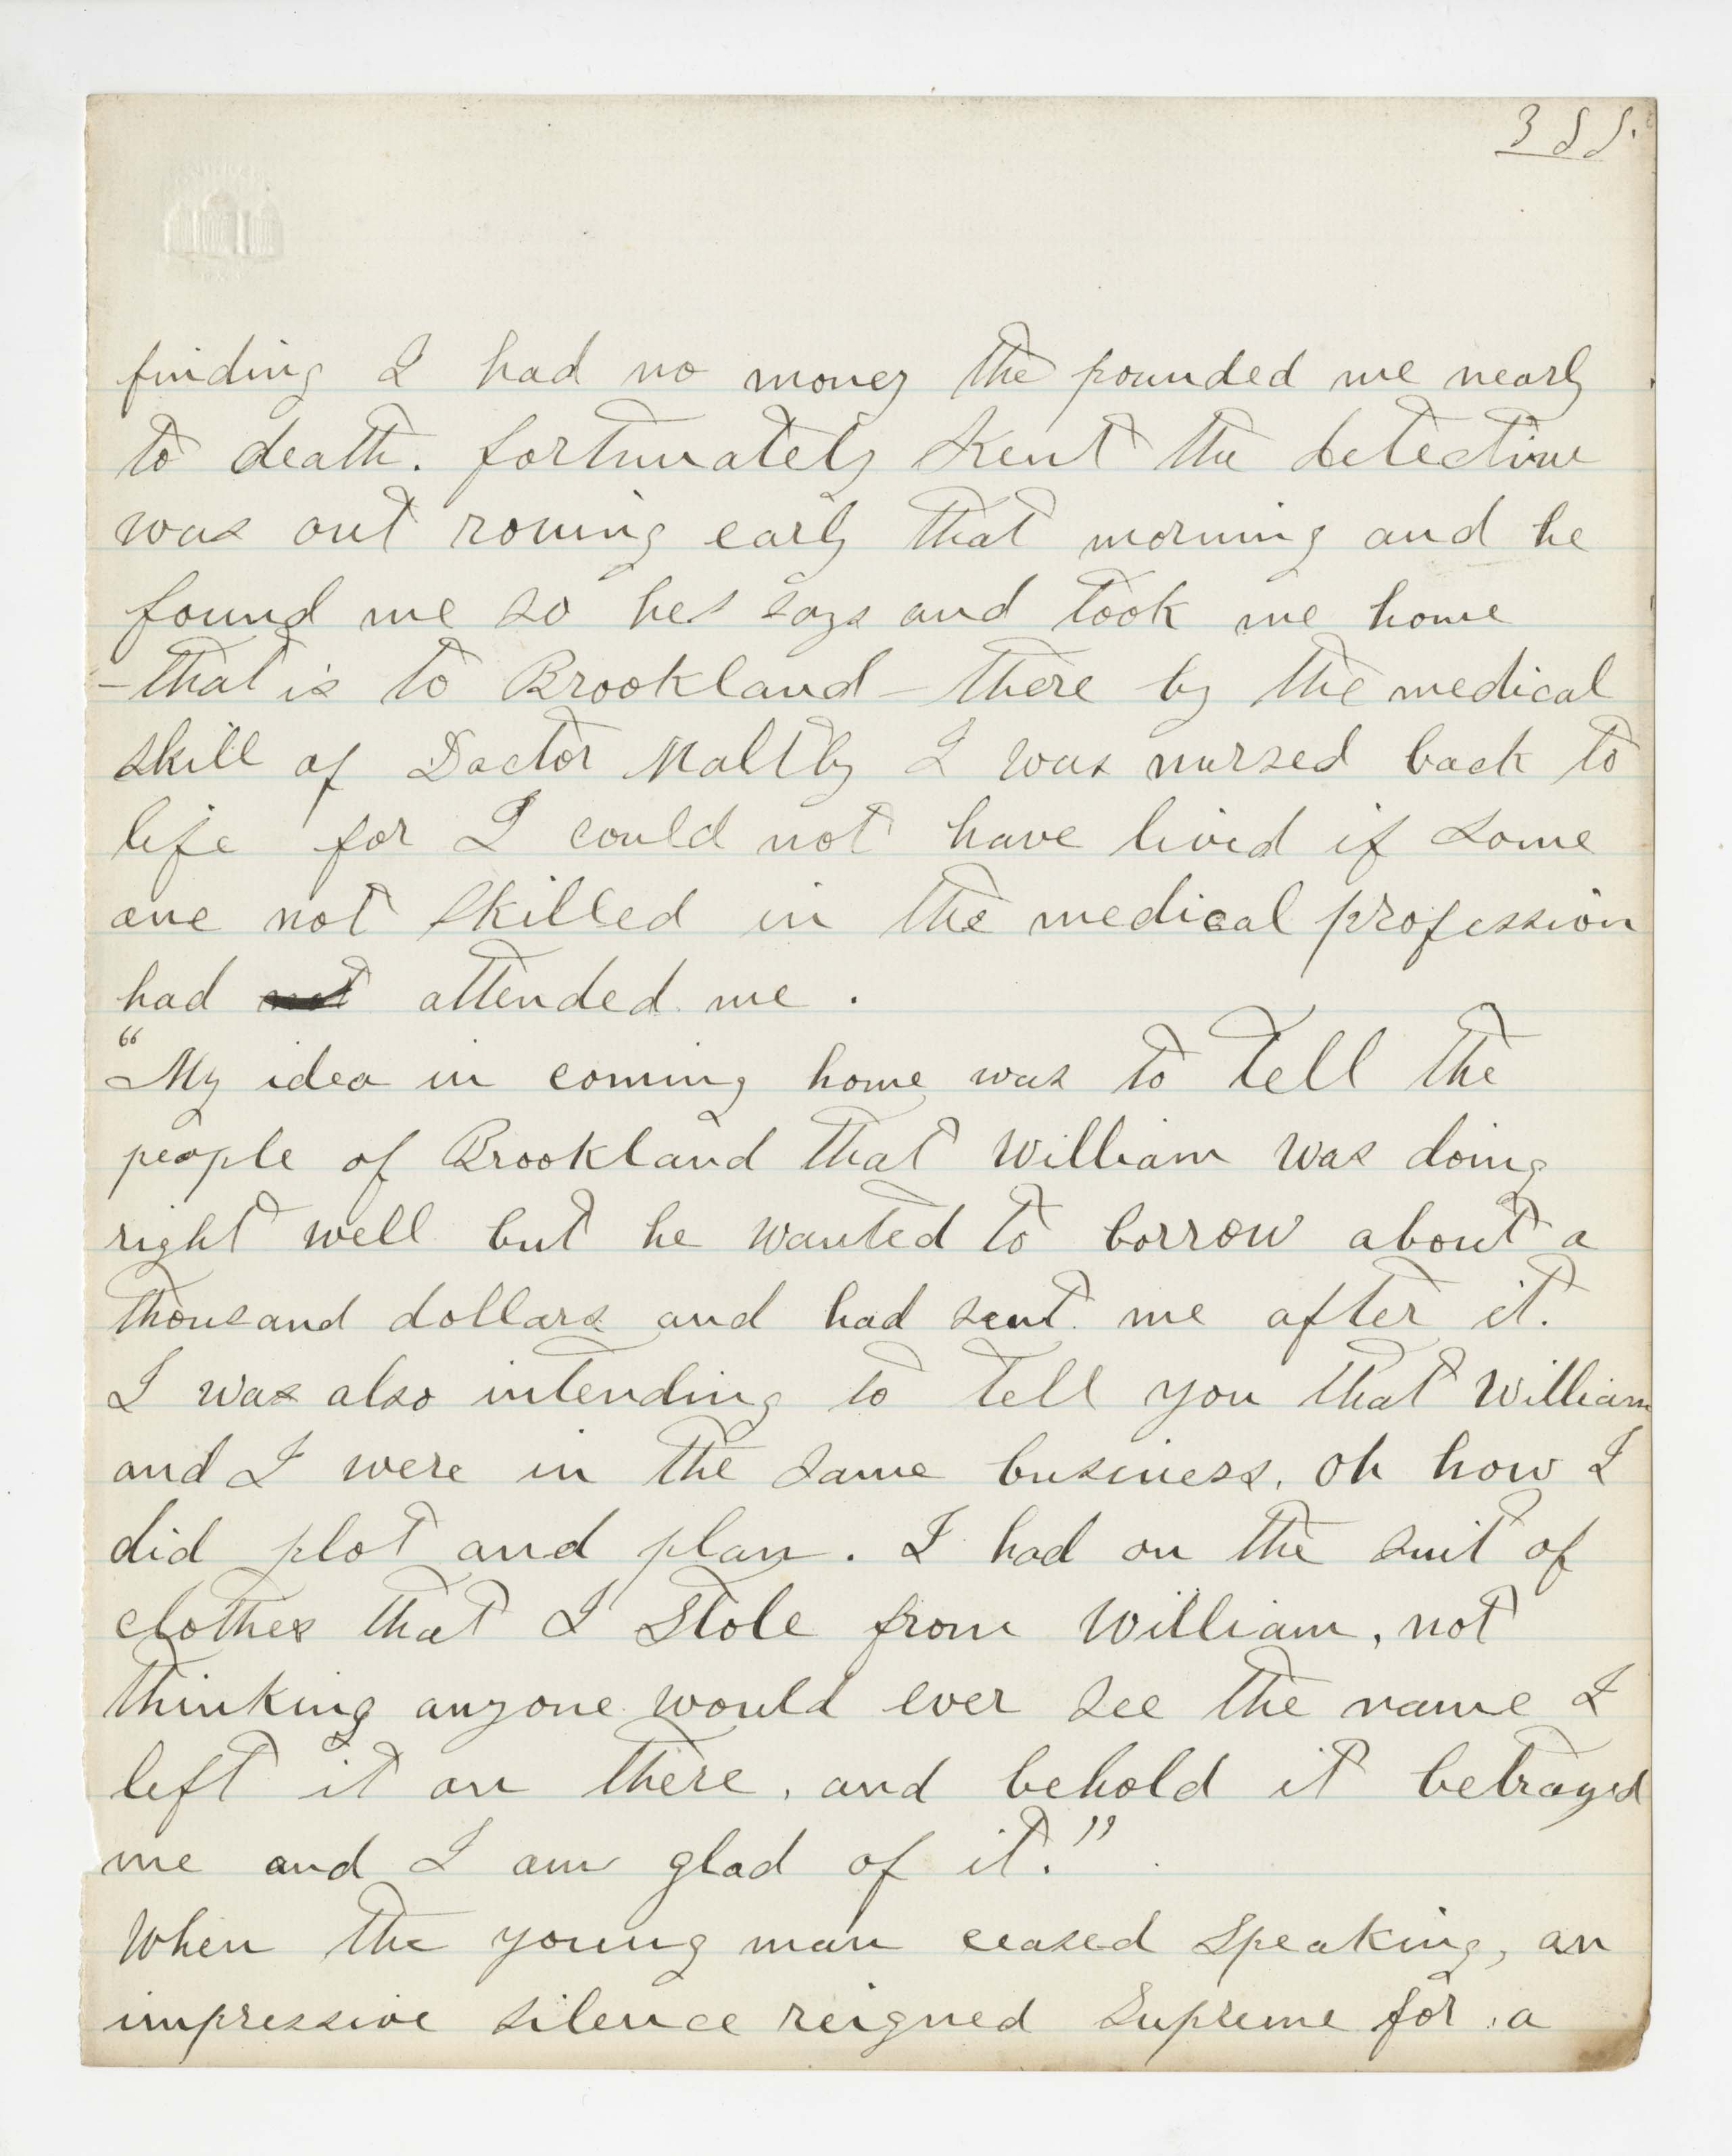 355.
finding I had no money the pounded me nearly
to death. fortunately Kent the detective
was out roving early that morning and he
found me so hes says and took me home
-that is to Brookland- there by the medical
skill of Doctor Maltby I was nursed back to
life for I could not have lived if some
one not skilled in the medical profession
had not attended me.
"My idea in coming home was to tell the
people of Brookland that William was doing
right well but he wanted to borrow about a
thousand dollars and had sent me after it.
I was also intending to tell you that William
and I were in the same business. Oh how I
did plot and plan. I had on the suit of
clothes that I stole from William, not
thinking anyone would ever see the name I
left it on there, and behold it betrayed
me and I am glad of it."
When the young man ceased speaking, an
impressive silence reigned supreme for a